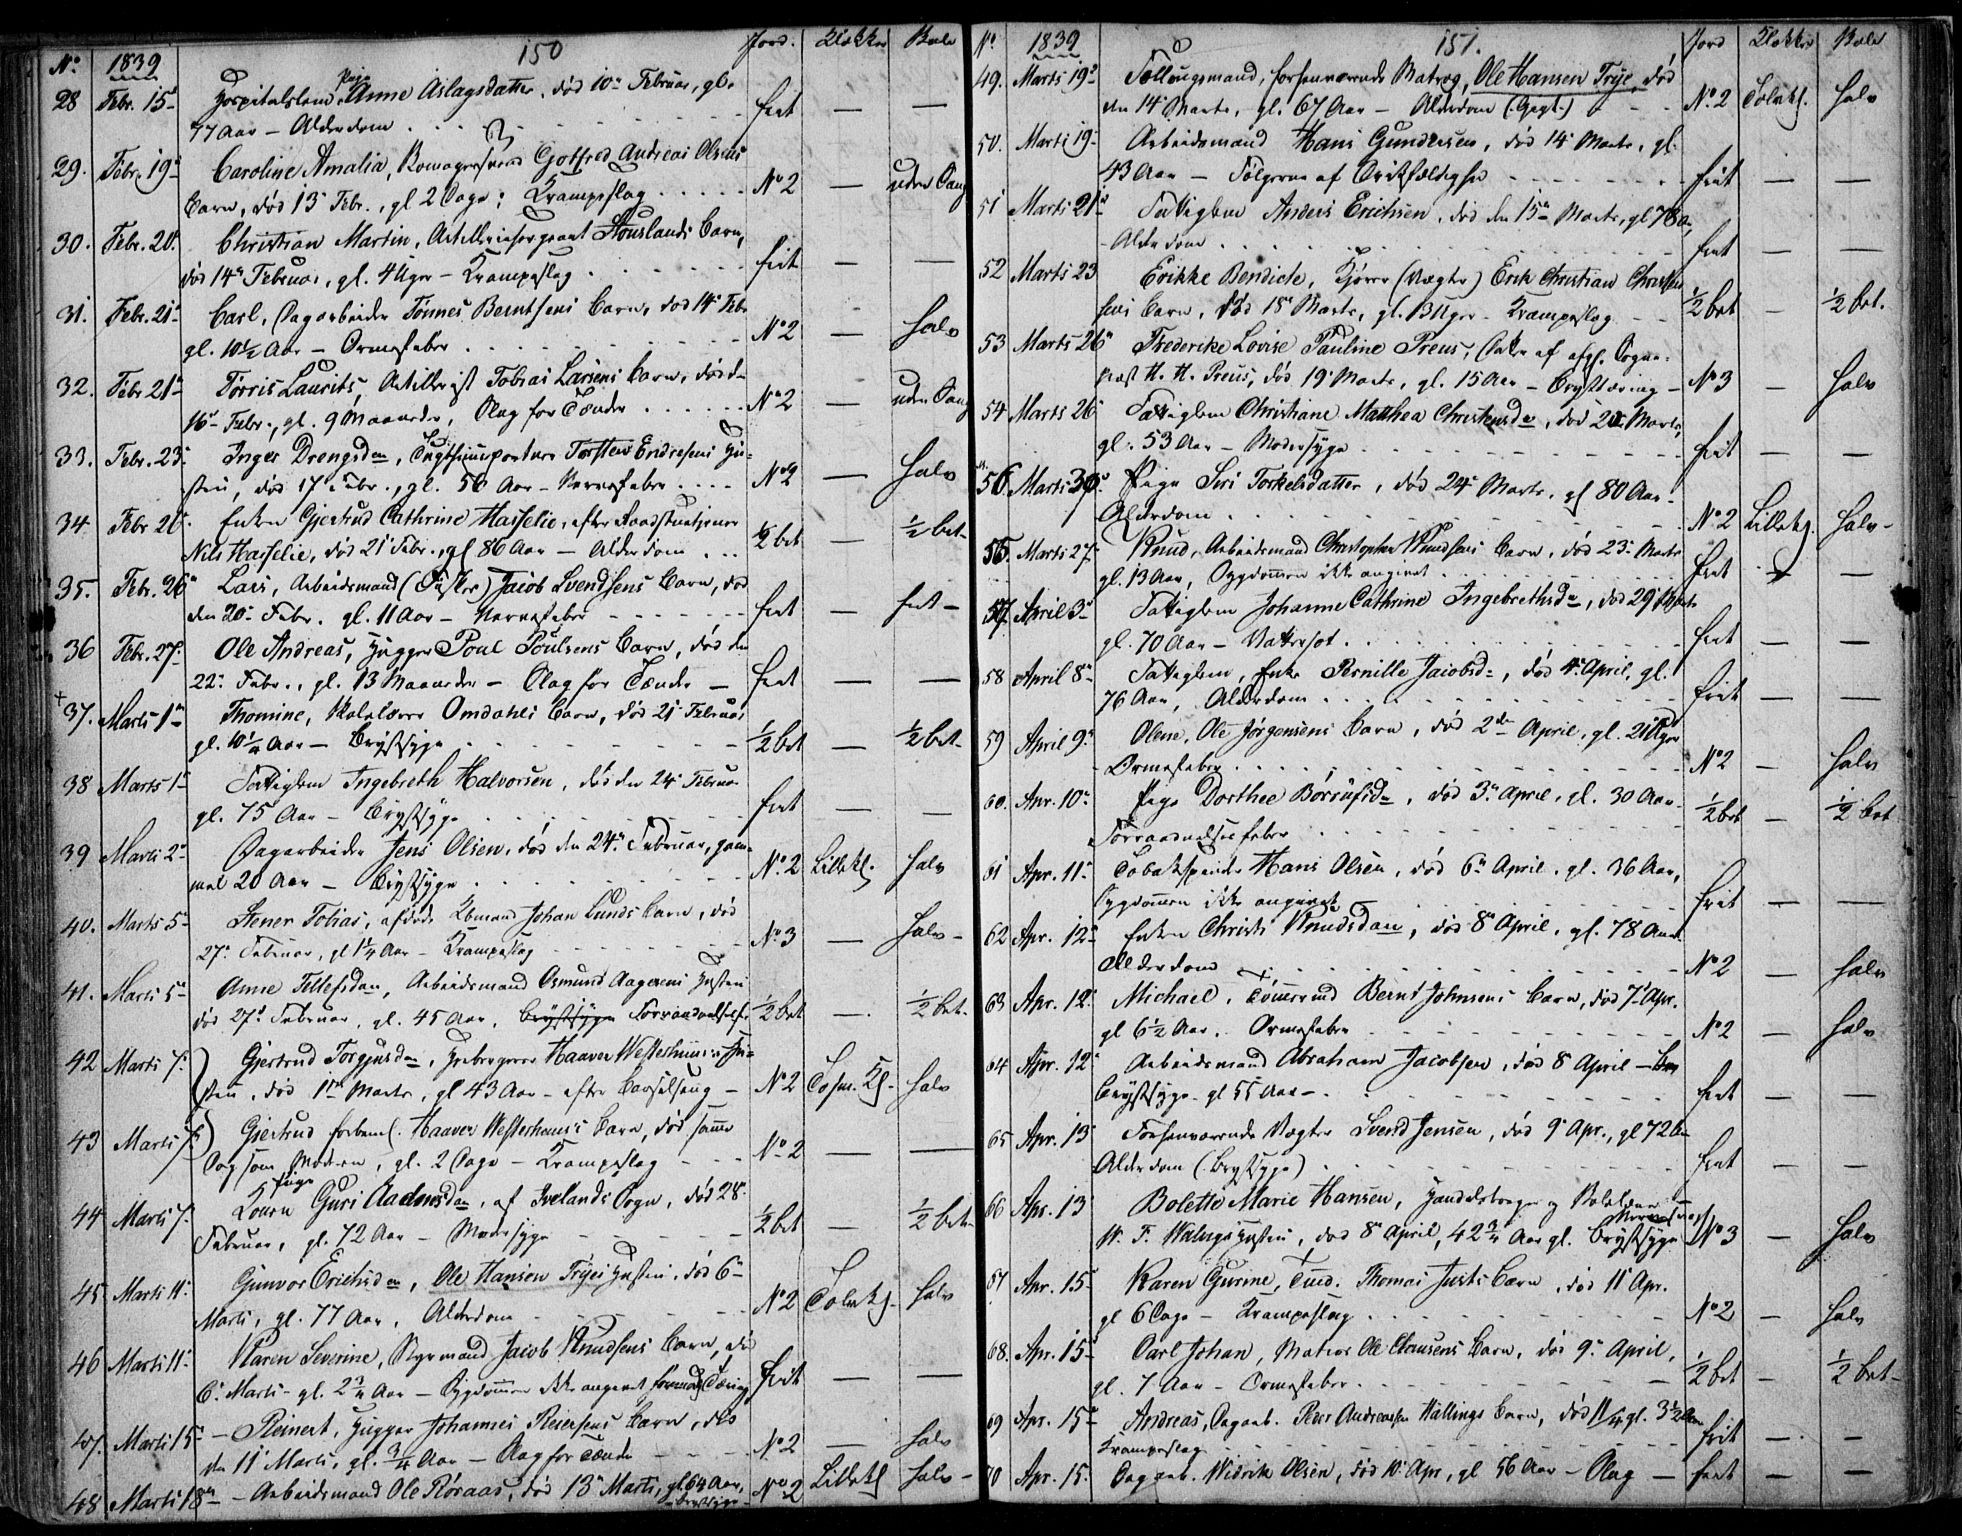 No. 1839 150 Jord. Klokker Bale
28 Febr. 15d Hospitalslem, Pige Anne Aslagsdatter, død 10de Februar, gl.
77 Aar – Alderdom . . . frit — —
29. Febr. 19d Caroline Amalia, Gotfred Andreas Olsens
Barn, død 13d Febr., gl 2 Dage; Krampeslag . . . No 2 — uden Sang
30. Febr. 20d Christian Martin, Artillerisergeant Houslands Barn,
død 14d Februar, gl. 4 Uger – Krampeslag . . . frit — —
31. Febr. 21d Carl, Dagarbeider Tönnes Berntsens Barn, død 14d Febr
gl. 10½ Aar – Ormefeber . . . No 2 — halv
32. Febr 21d Törris Laurits, Artillerist Tobias Larsens Barn, død d.
16d Febr., gl. 9 Maaneder, Slag for Tænder . . . No 2 — uden Sang
33. Febr. 23d Inger Drengsdn, Tugthuusportner Torsten Endresens Hu-
stru, død 17d Febr., gl. 50 Aar – Nervefeber . . . No 2 — halv
34 Febr 26d Enken Gjertrud Cathrine Hasselie, efter Raadstuetjener
Nils Hasselie, død 21d Febr., gl 86 Aar – Alderdom . . ½ bet — ½ bet.
35. Febr. 26d Lars, Arbeidsmand (Fisker) Jacob Svendsens Barn, død
den 20d Febr. gl. 11 Aar – Nervefeber . . . frit — frit
36 Febr. 27d Ole Andreas, Hugger Poul Poulsens Barn, død den
22d Febr., gl. 13 Maaneder – Slag for Tænder – frit — —
37. Marts 1d Thomine, Skolelærer Omdahls Barn, død 21d Februar
gl. 10¼ Aar – Brystsyge . . . ½ bet — ½ bet.
38 Marts 1d Fattiglem Ingebreth Halvorsen, død den 24d Februar
gl. 75 Aar – Brystsyge . . . frit — —
39 Marts 2d Dagarbeider Jens Olsen, død den 24d Februar, gam-
mel 20 Aar – Brystsyge . . . No. 2 Lillekl. halv
40. Marts 5d Stener Tobias, afdøde Johan Lunds Barn, død
27d Februar, gl 1¼ Aar – Krampeslag . . . No 3 — halv
41. Marts 5d Anne Tellefsdan, Arbeidsmand Osmund Aagesens Hustru
død 27d Februar, gl. 45 Aar, Brystsyge Forraadnelsesf. ½ bet — ½ bet.
42 Marts 7d Gjertrud Torgjusdn, Haaver Westerhuus's Hu-
stru, død 1ste Marts, gl 43 Aar – efter Barselseng – No 2 Tofm. Kl. halv
43 Marts 7d Gjertrud forben. Haaver Westerhuus's Barn, død samme
Dag som Moderen, gl. 2 Dage – Krampeslag . . . No 2 — —
44 Marts 7d Pige Guri Aadnesdan, af Ivelands Sogn, død 28d
Februar, gl. 72 Aar – Modersyge . . . ½ bet — ½ bet.
45 Marts 11d Gunvor Erichsdn, Ole Hansen Tryes Hustru, død 6te
Marts, gl. 77 Aar, Alderdom . . . No 2 Tolvkl. halv
46 Marts 11d Karen Severine, Jacob Knudsens Barn, død
6d Marts – gl. 2¾ Aar – Sygdommen ikke angivet frit — —
47. Marts 15d – Reinert, Hugger Johannes Reiersens Barn, død
den 11d Marts, gl. ¾ Aar – Slag for Tænder . . . No 2 — halv
48 Marts 18d – Arbeidsmand Ole Röraas, død 13d Marts, gl. 64 Aar, Brystsyge No 2 Lillekl halv
No. 1839 151. Jord Klokker Bale
49. Marts 19d Fællugsmand, forhenværende Matros, Ole Hansen Trye, død
den 14 Marts, gl. 67 Aar – Alderdom (Gigt.) – No. 2 Tolvkl. halv
50. Marts 19d Arbeidsmand Hans Gundersen, død 14d Marts, gl.
43 Aar – Følgerne af Drikfældighed . . . frit — —
51 Marts 21d Fattiglem Anders Erichsen, død den 15d Marts, gl 78 A.,
Alderdom . . . frit — —
52 Marts 23 Erikke Bendicte, (Vægter) Erik Christian Christen-
sens Barn, død 18d Marts, gl. 13 Uger – Krampeslag . . ½ bet — ½ bet.
53 Marts 26d Frederike Lovise Pauline Preus, Datter af afg. Sogne-
præst H. H. Preus, død 19d Marts, gl. 15 Aar – Brysttæring – No 3 — halv
54 Marts 26d Fattiglem Christiane Matthea Christensdr, død 20d Marts,
gl. 53 Aar – Modersyge . . . frit — —
56. Marts 30d Pige Siri Torkelsdatter, død 24d Marts, gl 80 Aar –
Alderdom . . . No 2 Lillekl. halv
55. Marts 27d Knud, Arbeidsmand Christopher Knudsens Barn, død 23d Marts
gl. 13 Aar, Sygdommen ikke angivet . . . frit — —
57. April 3d Fattiglem Johanne Cathrine Ingebrethsdn, død 29 Marts
gl. 70 Aar – Vattersot . . . frit — —
58 April 8d Fattiglem, Enke Pernille Jacobsdn, død 4d April, gl.
76 Aar, Alderdom . . . frit — —
59 April 9d Olene, Ole Jörgensens Barn, død 2den April, gl. 21 Uger
Ormefeber . . . No 2 — halv
60. Apr. 10d Pige Dorthee Börrufsdn, død 3d April, gl. 30 Aar.
Forraadnelsesfeber . . . ½ bet — ½ bet
61 Apr. 11d Tobakspinder Hans Olsen, død 6d April, gl. 36 Aar,
Sygdommen ikke angivet . . . frit — —
62 Apr. 12d Enken Christi Knudsdan, død 8d April, gl. 78 Aar.
Alderdom . . . No 2 — halv
63 Apr. 12d Michael, Tömmermd Bernt Johnsens Barn, død 7d Apr.
gl 6½ Aar. Ormefeber . . . No 2 — halv
64 Apr. 12d Arbeidsmand Abraham Jacobsen, død 8 April –
Brystsyge – gl 55 Aar – . . . frit — —
65 Apr. 13 Forhenværende Vægter Svend Jensen, død 9d Apr., gl 72 Aar
Alderdom (Brystsyge) . . . frit — —
66 Apr. 13 Bolette Marie Hansen, Handelsborger og
W. F. Walugs Hustru, død 8d April, 42¾ Aar gl. Brystsyge No 3 — halv
67 Apr. 15d Karen Gurine, Tmd. Thomas Justs Barn, død 11d Apr.
gl 6 Dage – Krampeslag . . . No 2 — halv
68. Apr. 15d Carl Johan, Matros Ole Clausens Barn, død 9d April,
gl. 7 Aar – Ormefeber . . . ½ bet — ½ bet
69 Apr. 15d Andreas, Dagarb. Peder Andreassen Wallings Barn, død 11/4 gl. 3½ Aar
Krampeslag . . . frit — —
70 Apr. 15. Dagarb. Widrik Olsen, død 10d Apr, gl 56 Aar – Slag – frit — —